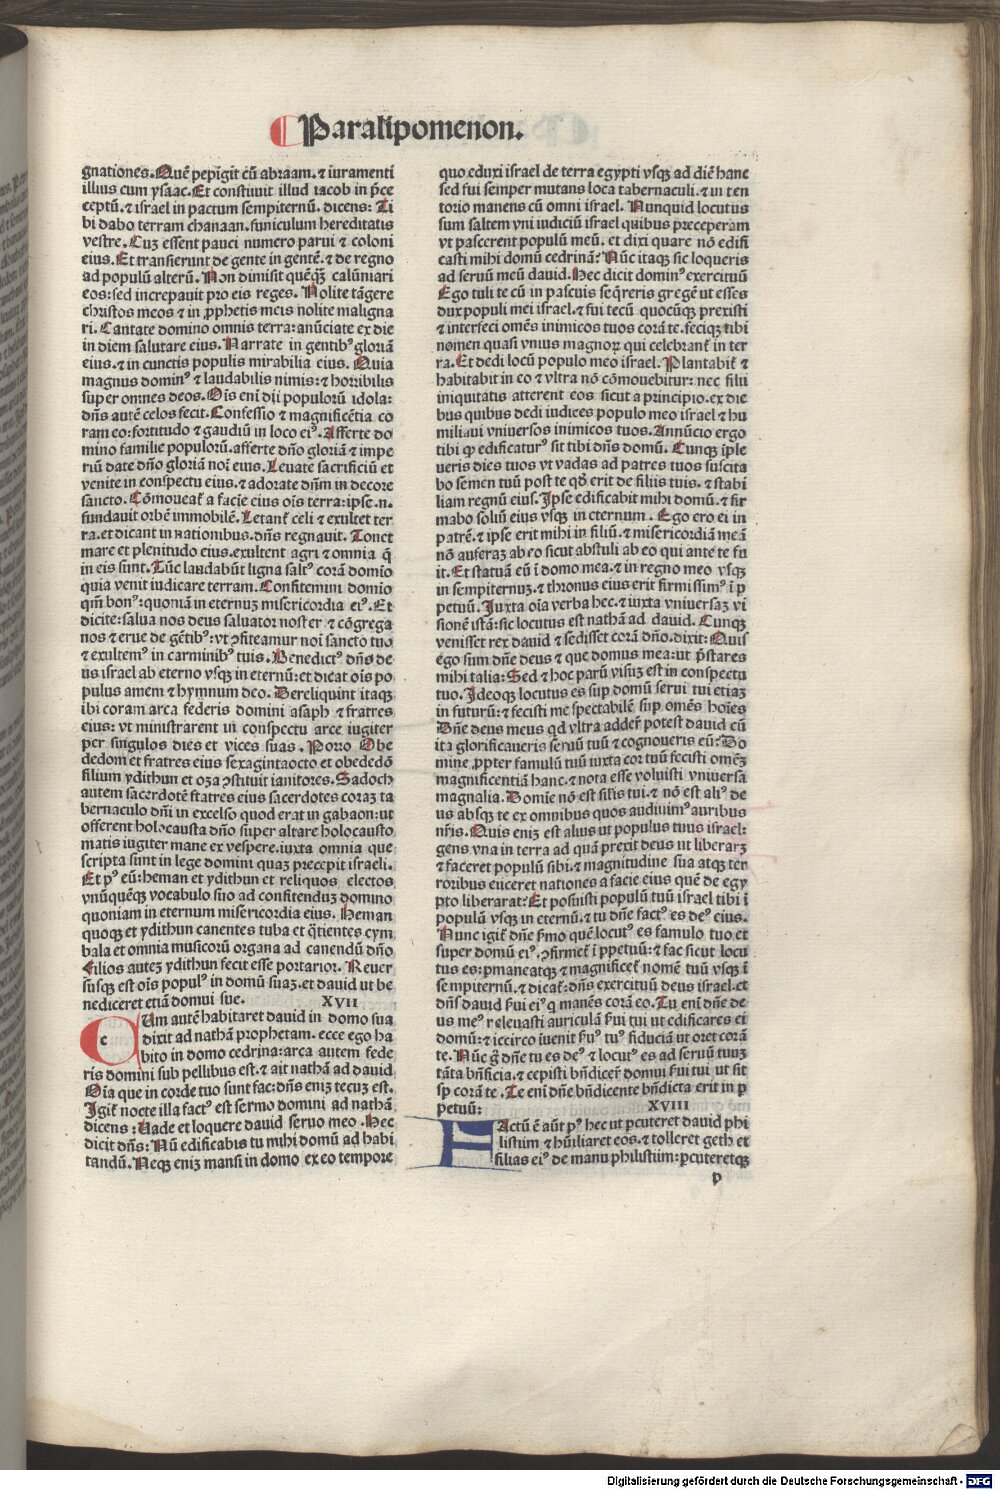 Paralipomenon.
gnationes. Quē pepigit cū abraam. ⁊ iuramenti
illius cum ysaac. Et constituit illud iacob in p̄ce
ceptū. ⁊ israel in pactum sempiternū. dicens: Ti
bi dabo terram chanaan. funiculum hereditatis
vestre. Cuʒ essent pauci numero parui ⁊ coloni
eius. Et transierunt de gente in gentē. ⁊ de regno
ad populū alterū. Non dimisit quēqȝ calūniari
eos: sed increpauit pro eis reges. Nolite tāgere
christos meos ⁊ in ꝓphetis meis nolite maligna
ri. Cantate domino omnis terra: anūciate ex die
in diem salutare eius. Narrate in gentibꝰ gloriā
eius. ⁊ in cunctis populis mirabilia eius. Quia
magnus dominꝰ ⁊ laudabilis nimis: ⁊ horribilis
super omnes deos. Oīs enī dij populorū idola:
dn̄s autē celos fecit. Confessio ⁊ magnificētia co
ram eo: fortitudo ⁊ gaudiū in loco eiꝰ. Afferte do
mino familie populorū. afferte dn̄o gloriā ⁊ impe
riū date dn̄o gloriā noī eius. Leuate sacrificiū et
venite in conspectu eius. ⁊ adorate dn̄m in decore
sancto. Cōmoueat̄ a facie eius oīs terra: ipse. n.
fundauit orbē immobilē. Letant̄ celi ⁊ exultet ter
ra. et dicant in nationibus. dn̄s regnauit. Tonet
mare et plenitudo eius. exultent agri ⁊ omnia q̄
in eis sunt. Tūc laudabūt ligna saltꝰ corā domīo
quia venit iudicare terram. Confitemini domīo
qm̄ bonꝰ: quoniā in eternuʒ misericordia eiꝰ. Et
dicite: salua nos deus saluator noster ⁊ cōgrega
nos ⁊ erue de gētibꝰ: vt ꝯfiteamur noī sancto tuo
⁊ exultemꝰ in carminibꝰ tuis. Benedictꝰ dn̄s de
us israel ab eterno vsqȝ in eternū: et dicat oīs po
pulus amem ⁊ hymnum deo. Dereliquint itaqȝ
ibi coram arca federis domini asaph ⁊ fratres
eius: vt ministrarent in conspectu arce iugiter
per singulos dies et vices suas. Porro Obe
dedom et fratres eius sexagintaocto et obededō
filium ydithun et oza ꝯstituit ianitores. Sadoch
autem sacerdotē ⁊ fratres eius sacerdotes coraʒ ta
bernaculo dn̄i in excelso quod erat in gabaon: ut
offerent holocausta dn̄o super altare holocausto
matis iugiter mane ex vespere. iuxta omnia que
scripta sunt in lege domini quaʒ precepit israeli.
Et pꝰ eū: heman et ydithun et reliquos electos
vnūquēqȝ vocabulo suo ad confitenduʒ domino
quoniam in eternum misericordia eius. Heman
quoqȝ et ydithun canentes tuba et q̄tientes cym
bala et omnia musicorū organa ad canendū dn̄o
Filios auteʒ ydithun fecit esse portarior. Reuer
susqȝ est oīs populꝰ in domū suaʒ. et dauid ut be
nediceret etiā domui sue. XVII
c
Um autē habitaret dauid in domo sua
dixit ad nathā prophetam. ecce ego ha
bito in domo cedrina: arca autem fede
ris domini sub pellibus est. ⁊ ait nathā ad dauid
Oīa que in corde tuo sunt fac: dn̄s eniʒ tecuʒ est.
Igit̄ nocte illa factꝰ est sermo domini ad nathā
dicens: Uade et loquere dauid seruo meo. Hec
dicit dn̄s: Nū edificabis tu mihi domū ad habi
tandū. Neqȝ eniʒ mansi in domo ex eo tempore
quo eduxi israel de terra egypti vsqȝ ad diē hanc
sed fui semper mutans loca tabernaculi. ⁊ in ten
torio manens cū omni israel. Nunquid locutus
sum saltem vni iudiciū israel quibus preceperam
vt pascerent populū meū. et dixi quare nō edifi
casti mihi domū cedrinā? Nūc itaqȝ sic loqueris
ad seruū meū dauid. Hec dicit dominꝰ exercituū
Ego tuli te cū in pascuis seq̄reris gregē ut esses
dux populi mei israel. ⁊ fui tecū quocūqȝ prexisti
⁊ interfeci omēs inimicos tuos corā te. feciqȝ tibi
nomen quasi vnius magnoꝝ qui celebrant̄ in ter
ra. Et dedi locū populo meo israel. Plantabit̄ ⁊
habitabit in eo ⁊ vltra nō cōmouebitur: nec filii
iniquitatis atterent eos sicut a principio. ex die
bus quibus dedi iudices populo meo israel ⁊ hu
miliaui vniuersos inimicos tuos. Annūcio ergo
tibi qꝫ edificaturꝰ sit tibi dn̄s domū. Cunqȝ īple
ueris dies tuos vt vadas ad patres tuos suscita
bo semen tuū post te qd̄ erit de filiis tuis. ⁊ stabi
liam regnū eius. Ipse edificabit mihi domū. ⁊ fir
mabo soliū eius vsqȝ in eternum. Ego ero ei in
patrē. ⁊ ipse erit mihi in filiū. ⁊ misericordiā meā
nō auferaʒ ab eo sicut abstuli ab eo qui ante te fu
it. Et statuā eū ī domo mea. ⁊ in regno meo vsqȝ
in sempiternuʒ. ⁊ thronus eius erit firmissimꝰ ī ꝑ
petuū. Iuxta oīa verba hec. ⁊ iuxta vniuersaʒ vi
sionē istā: sic locutus est nathā ad dauid. Cunqȝ
venisset rex dauid ⁊ sedisset corā dn̄o. dixit: Quis
ego sum dn̄e deus ⁊ que domus mea: ut p̄stares
mihi talia: Sed ⁊ hoc parū visuʒ est in conspectu
tuo. Ideoqȝ locutus es sup domū serui tui etiaʒ
in futurū: ⁊ fecisti me spectabilē sup omēs hoīes
Dn̄e deus meus qd vltra adder̄ potest dauid cū
ita glorificaueris seruū tuū ⁊ cognoueris eū: Do
mine ꝓpter famulū tuū iuxta cor tuū fecisti omēʒ
magnificentiā hanc. ⁊ nota esse voluisti vniuersa
magnalia. Domīe nō est silīs tui. ⁊ nō est aliꝰ de
us absqȝ te ex omnibus quos audiuimꝰ auribus
nr̄is. Quis eniʒ est alius ut populus tuus israel:
gens vna in terra ad quā prexit deus ut liberarʒ
⁊ faceret populū sibi. ⁊ magnitudine sua atqȝ ter
roribus eiiceret nationes a facie eius quē de egy
pto liberarat: Et posuisti populū tuū israel tibi ī
populū vsqȝ in eternū. ⁊ tu dn̄e factꝰ es deꝰ eius.
Nunc igit̄ dn̄e s̄mo quē locutꝰ es famulo tuo et
super domū eiꝰ. ꝯfirmet̄ ī ꝑpetuū: ⁊ fac sicut locu
tus es: ꝑmaneatqȝ ⁊ magnificet̄ nomē tuū vsqȝ ī
sempiternū. ⁊ dicat̄: dn̄s exercituū deus israel. et
domꝰ dauid s̄ui eiꝰ q manēs corā eo. Tu enī dn̄e de
us meꝰ releuasti auriculā s̄ui tui ut edificares ei
domū: ⁊ iccirco īuenit s̄uꝰ tuꝰ fiduciā ut oret corā
te. Nūc g̊ dn̄e tu es deꝰ ⁊ locutꝰ es ad seruū tuuʒ
tāta bn̄ficia. ⁊ cepisti bn̄dicer̄ domui s̄ui tui ut sit
sp corā te. Te enī dn̄e bn̄dicente bn̄dicta erit in ꝑ
petuū: XVIII
FActū ē aūt pꝰ hec ut ꝑcuteret dauid phi
listiim ⁊ hūiliaret eos. ⁊ tolleret geth et
filias eiꝰ de manu philistiim: ꝑcuteretqȝ
v
Digitalisierung gefördert durch die Deutsche Forschungsgemeinschaft - DFG